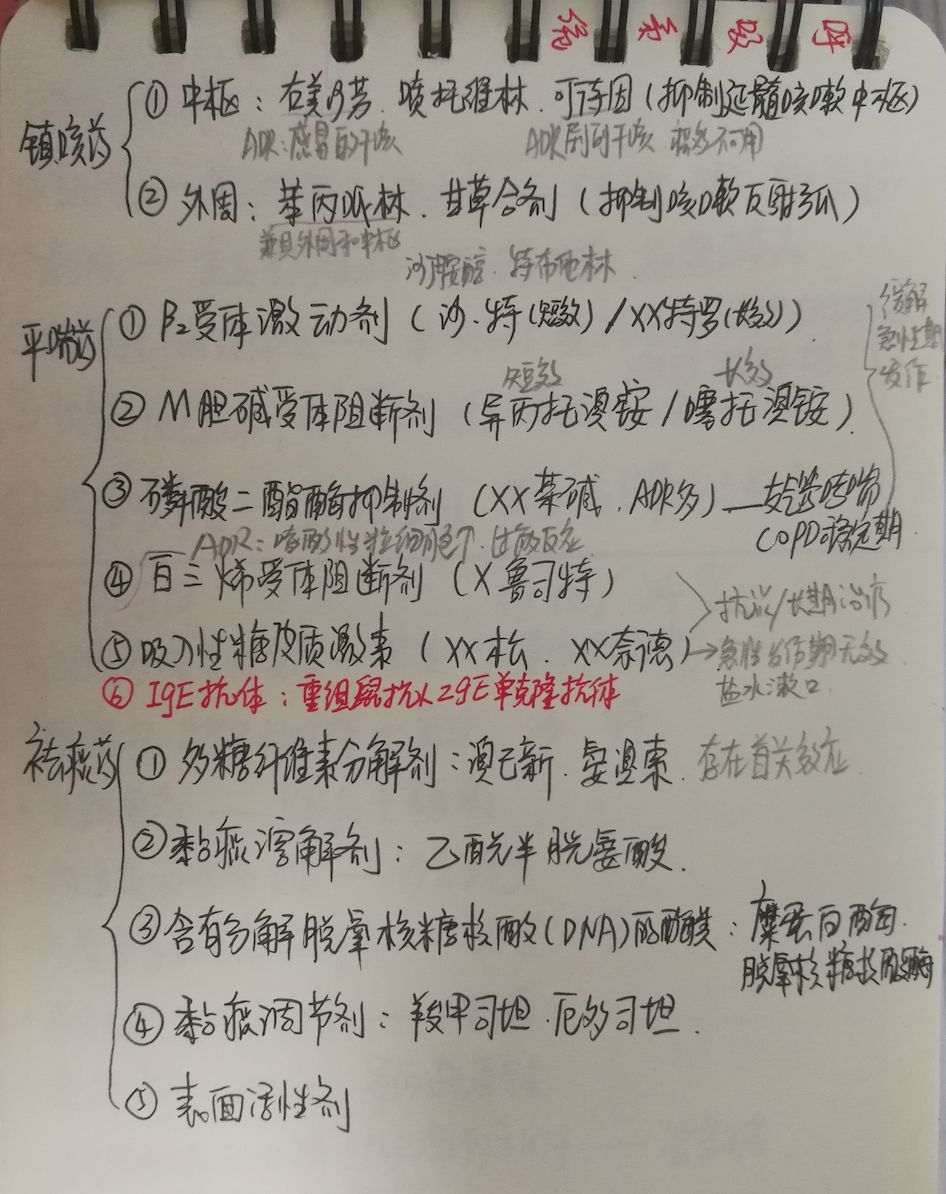 呼吸系统
镇咳药
① 中枢：右美沙芬. 喷托维林. 可待因（抑制延髓咳嗽中枢）
ADR：感冒的干咳 ADR剧烈干咳. 痰多不可用
② 外周：苯丙哌林. 甘草合剂（抑制咳嗽反射弧）
兼具外周和中枢
沙丁胺醇. 特布他林.
平喘药
① β2受体激动剂（沙.特(短效) / XX特罗(长效)）
缓解
急性期
发作
短效 长效
② M胆碱受体阻断剂（异丙托溴铵 / 噻托溴铵）.
③ 磷酸二酯酶抑制剂（XX茶碱. ADR多）— 哮喘
COPD稳定期.
ADR：嗜酸性粒细胞↑. 过敏反应
④ 白三烯受体阻断剂（X鲁司特）
抗炎/长期治疗
⑤ 吸入性糖皮质激素（XX松. XX奈德）→急性发作期无效.
盐水漱口.
⑥ IgE抗体：重组鼠抗人IgE单克隆抗体
祛痰药
① 多糖纤维素分解剂：溴己新. 氨溴索. 存在首关效应.
② 黏痰溶解剂：乙酰半胱氨酸.
③ 含有分解脱氧核糖核酸(DNA)的酶类：糜蛋白酶.
脱氧核糖核酸酶
④ 黏痰调节剂：羧甲司坦. 厄多司坦.
⑤ 表面活性剂